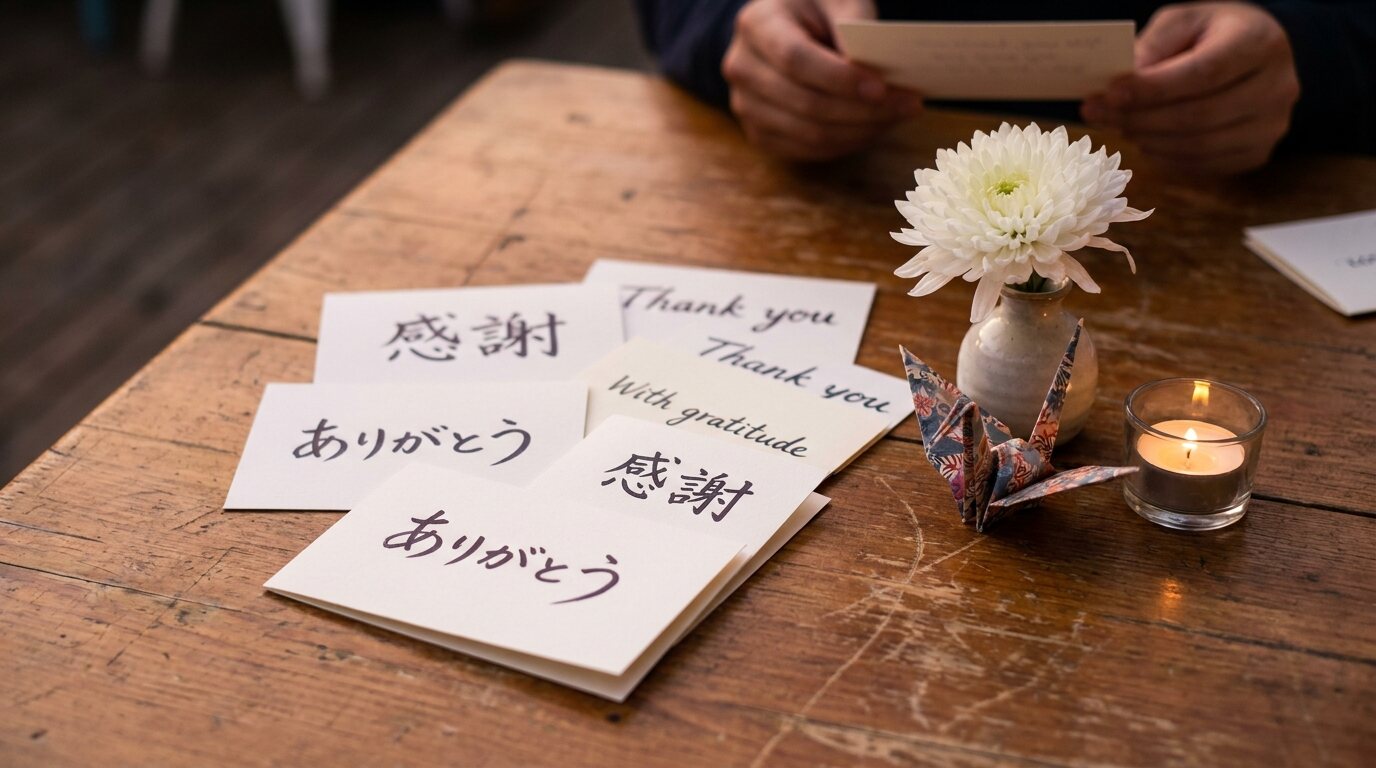 感謝
Thank you
Thank you
With gratitude
ありがとう
感謝
ありがとう